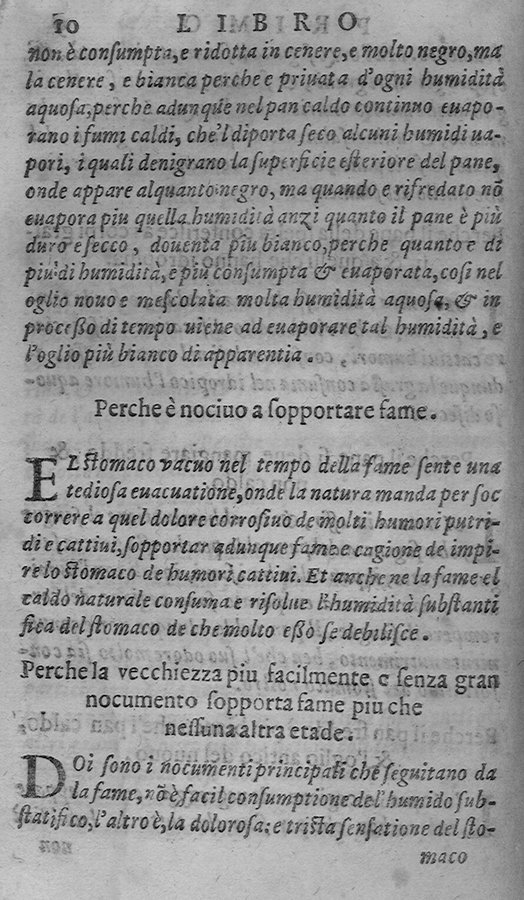 10 LIBRO
non è conſumpta, e ridotta in cenere, e molto negro, ma
la cenere, e bianca perche e priuata d'ogni humidità
aquoſa, perche adunque nel pan caldo continuo euapo-
rano i fumi caldi, che'l diporta ſeco alcuni humidi ua-
pori, i quali denigrano la ſuperficie eſteriore del pane,
onde appare alquanto negro, ma quando e rifredato nõ
euapora piu quella humidità anzi quanto il pane è più
duro e ſecco, douenta più bianco, perche quanto e di
più di humidità, e più conſumpta & euaporata, coſi nel
oglio nouo e meſcolata molta humidità aquoſa, & in
proceßo di tempo uiene ad euaporare tal humidità, e
l'oglio più bianco di apparentia.
Perche è nociuo a ſopportare fame.
EL ſtomaco vacuo nel tempo della fame ſente una
tedioſa euacuatione, onde la natura manda per ſoc
correre a quel dolore corroſiuo de molti humori putri-
di e cattiui, ſopportar adunque fame e cagione de impi-
re lo ſtomaco de humori cattiui. Et anche ne la fame el
caldo naturale conſuma e riſolue l'humidità ſubſtanti
fica del ſtomaco de che molto eßo ſe debiliſce.
Perche la vecchiezza più facilmente e ſenza gran
nocumento ſopporta fame più che
neſſuna altra etade.
DOi ſono i nocumenti principali che ſeguitano da
la fame, nõ è facil conſumptione del'humido ſub-
ſtãtifico, l'altro è, la doloroſa: e triſta ſenſatione del ſto-
maco